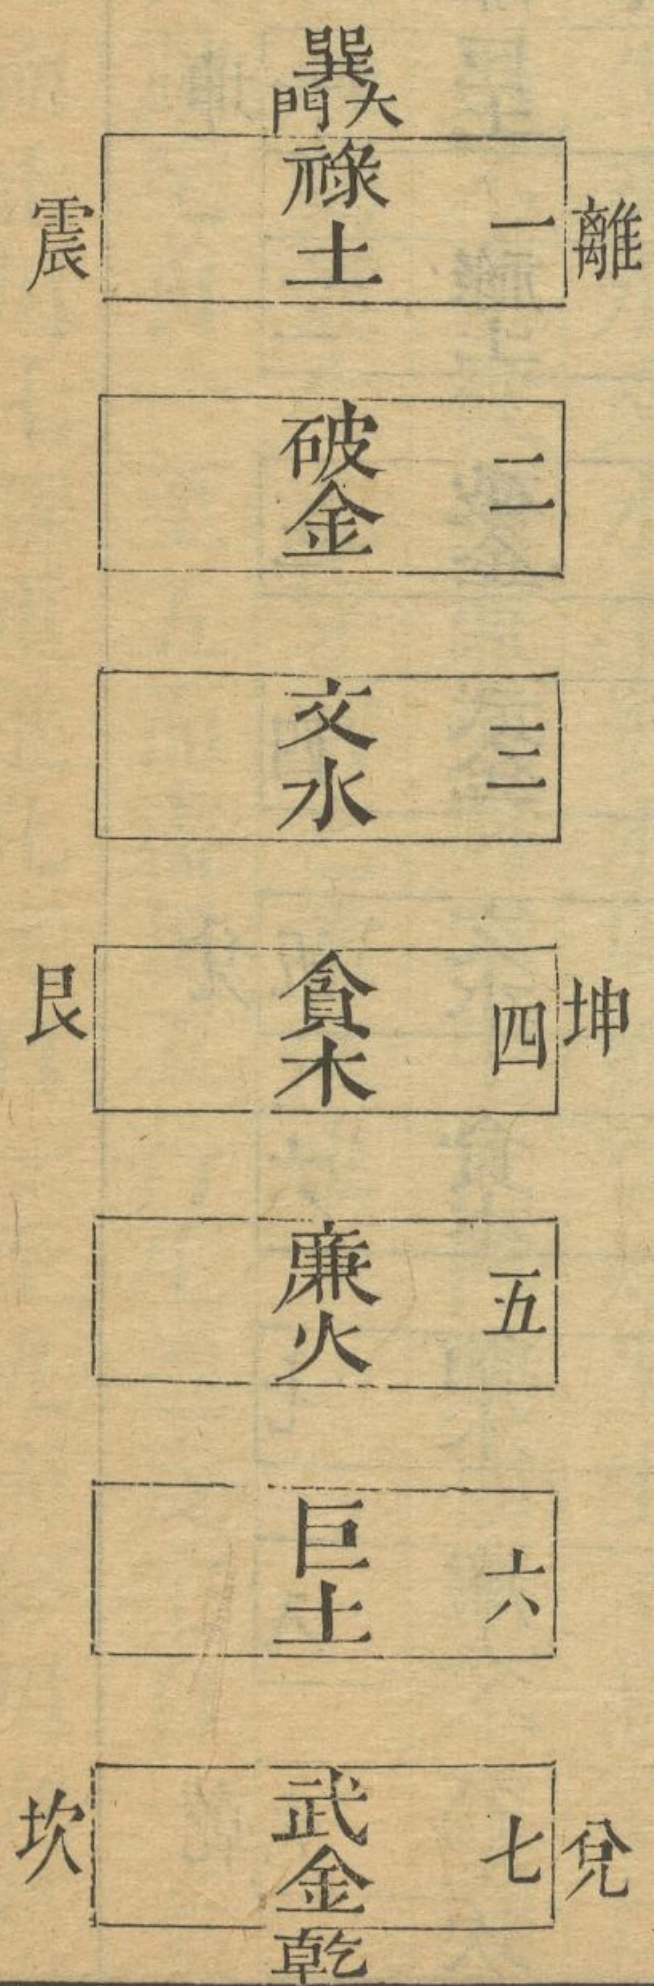 巽
大門
離
一
祿土
震
二
破金
三
文水
坤
四
貪木
艮
五
廉火
六
巨土
兌
七
武金
坎
乾